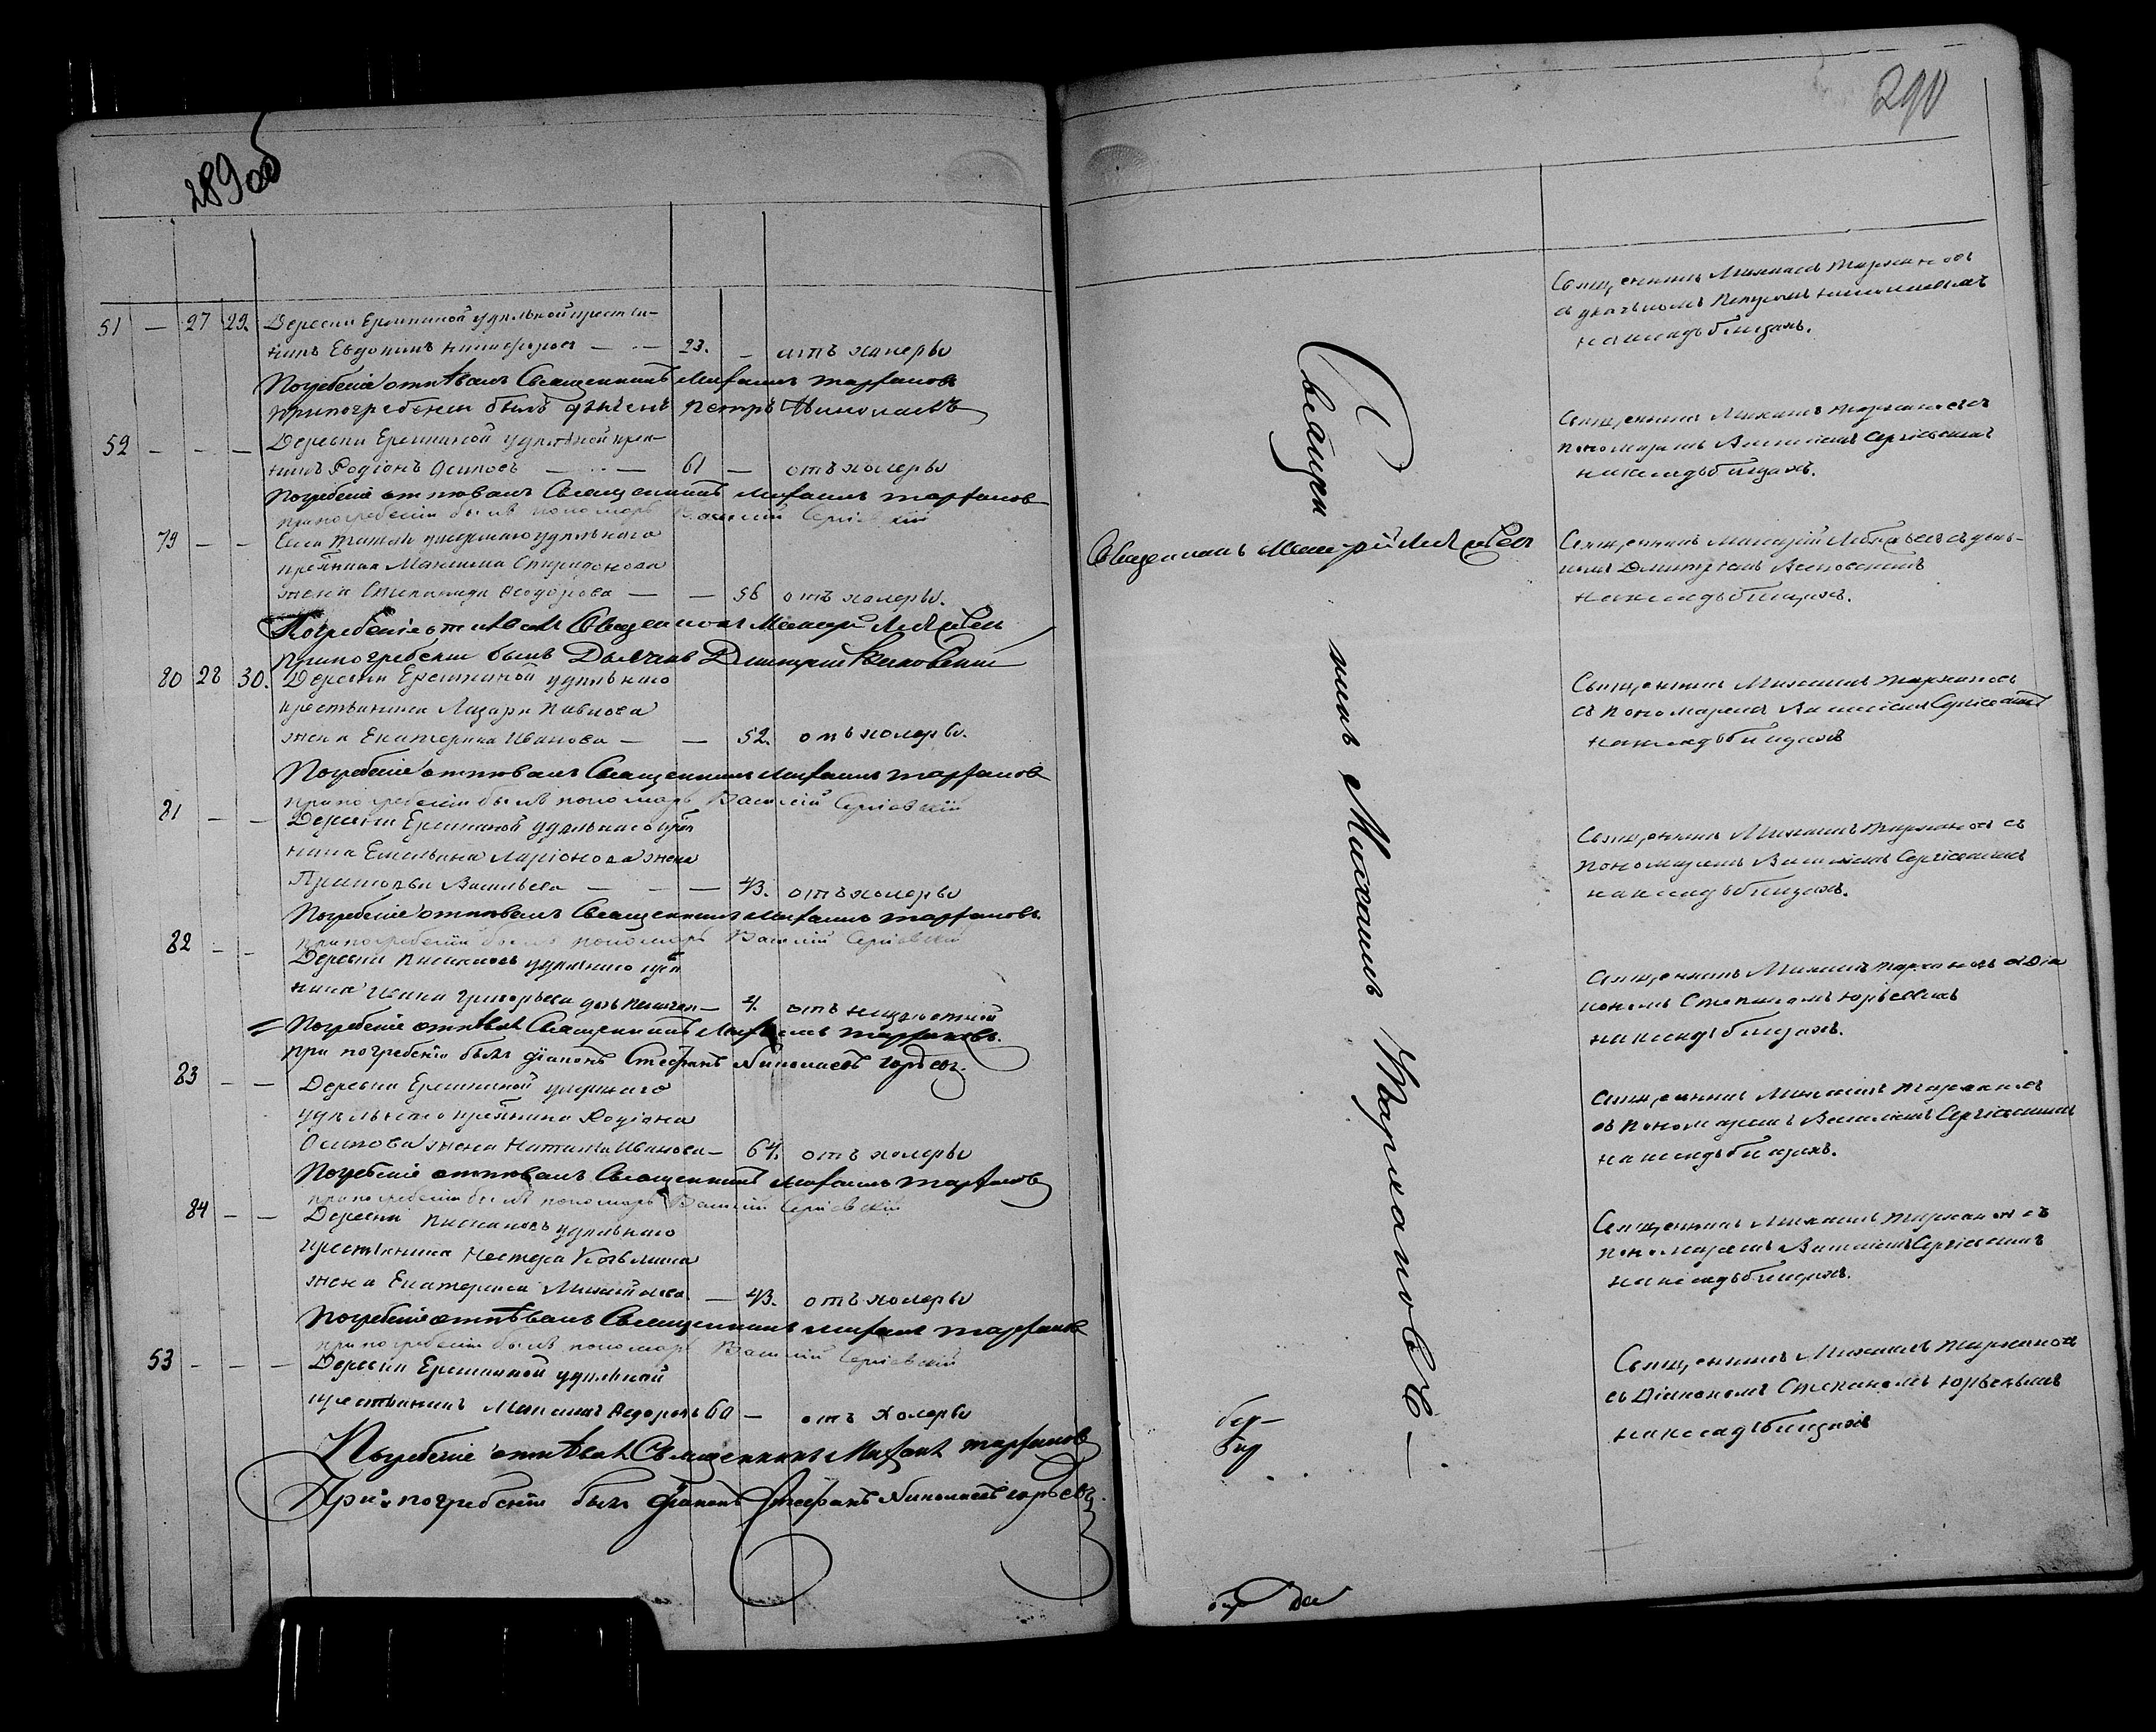 289 об
51 — 27 29. Деревни Еремкиной удѣльной крестья-
нинъ Евдокимъ Никифоровъ — 23. — отъ холеры
Погребенiе отпѣвалъ Священникъ Михаилъ Тархановъ
При погребенiи былъ дьячекъ Петръ Николаевъ
52 — — — Деревни Еремкиной удѣльной крест-
нинъ Родiонъ Осиповъ — 61 — отъ холеры
Погребенiе отпѣвалъ Священникъ Михаилъ Тархановъ
при погребенiи былъ пономарь Василiй Сергiевскiй
79 — — Села умершаго удѣльнаго
крестьянина Максима Спиридонова
жена Степанида Ѳеодорова — — 56 отъ холеры.
Погребенiе отпѣвалъ Священникъ
При погребенiи былъ Дьячекъ Дмитрiй
80 28 30. Деревни Еремкиной удѣльнаго
крестьянина Лазаря Павлова
жена Екатерина Иванова — — 52. отъ холеры.
Погребенiе отпѣвалъ Священникъ Михаилъ Тархановъ
при погребенiи былъ пономарь Василiй Сергiевскiй
81 — — Деревни Еремкиной удѣльнаго крест
нина Емельяна Ларiонова жена
Васильева — — — 43. отъ холеры
Погребенiе отпѣвалъ Священникъ Михаилъ Тархановъ.
при погребенiи былъ пономарь Василiй Сергiевскiй
82 — — Деревни удѣльнаго крест
нина Ивана Григорьева дочь — 4. отъ
Погребенiе отпѣвалъ Священникъ Михаилъ Тархановъ.
при погребенiи былъ дiаконъ Стефанъ Николаевъ Юрьевъ.
83 — — Деревни Еремкиной умершаго
удѣльнаго крестьянина Родiона
Осипова жена Наталья Иванова — 64. отъ холеры
Погребенiе отпѣвалъ Священникъ Михаилъ Тархановъ
при погребенiи былъ пономарь Василiй Сергiевскiй
84 — — Деревни удѣльнаго
крестьянина Нестера Козьмина
жена Екатерина Михайлова — 43. отъ холеры
Погребенiе отпѣвалъ Священникъ Михаилъ Тархановъ
при погребенiи былъ пономарь Василiй Сергiевскiй
53 — — — Деревни Еремкиной удѣльной
крестьянинъ Максимъ Ѳедоровъ 60 — отъ холеры
Погребенiе отпѣвалъ Священникъ Михаилъ Тархановъ
При погребенiи былъ дiаконъ Стефанъ Николаевъ Юрьевъ.
290
Священникъ Михаилъ Тархановъ —
Священникъ
Священникъ Михаилъ Тархановъ
съ дьячкомъ Петромъ Николаевымъ
на кладьбищахъ.
Священникъ Михаилъ Тархановъ съ
пономаремъ Василiемъ Сергiевскимъ
на кладьбищахъ.
Священникъ съ дьяч-
комъ Дмитрiемъ
на кладьбищахъ.
Священникъ Михаилъ Тархановъ
съ пономаремъ Василiемъ Сергiевскимъ
на кладьбищахъ
Священникъ Михаилъ Тархановъ съ
пономаремъ Василiемъ Сергiевскимъ
на кладьбищахъ.
Священникъ Михаилъ Тархановъ съ Дiа
кономъ Степаномъ Юрьевымъ
на кладьбищахъ.
Священникъ Михаилъ Тархановъ
съ пономаремъ Василiемъ Сергiевскимъ
на кладьбищахъ.
Священникъ Михаилъ Тархановъ съ
пономаремъ Василiемъ Сергiевскимъ
на кладьбищахъ.
Священникъ Михаилъ Тархановъ
съ Дiакономъ Степаномъ Юрьевымъ
на кладьбищахъ